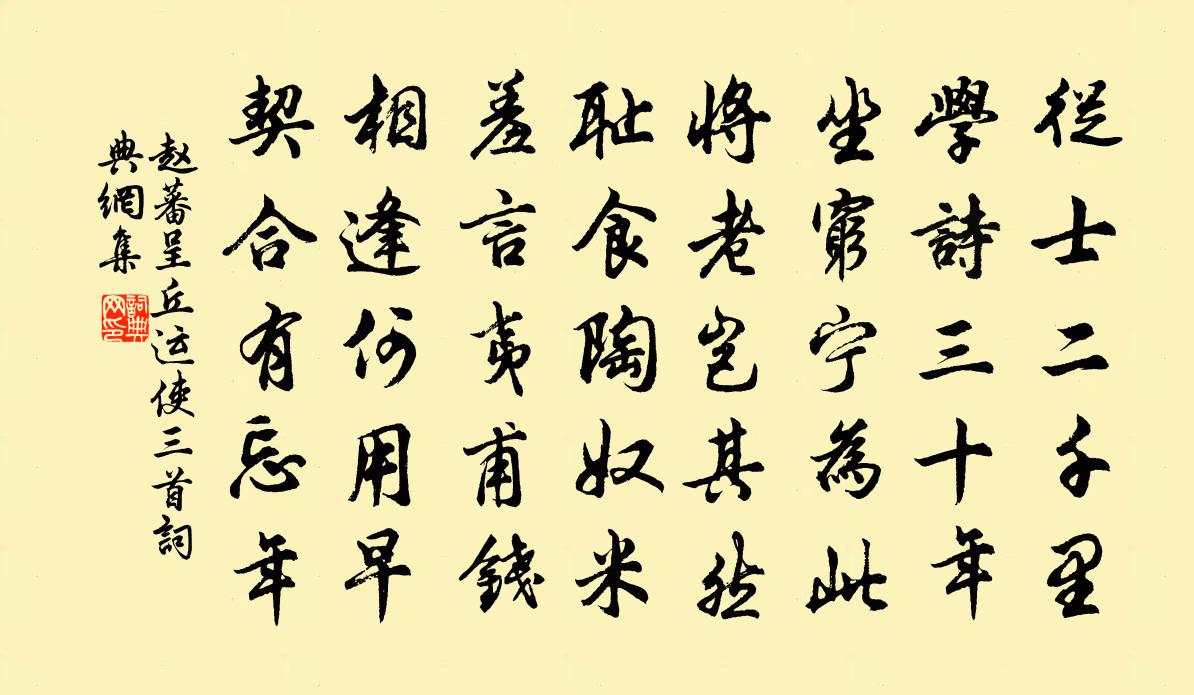 從士二千里
學詩三十年
坐窮宁為此
將老豈其然
耻食陶奴米
羞言夷甫錢
相逢何用早
契合有忘年
赵蕃呈丘运使三首詞
典網集
詞典
网印